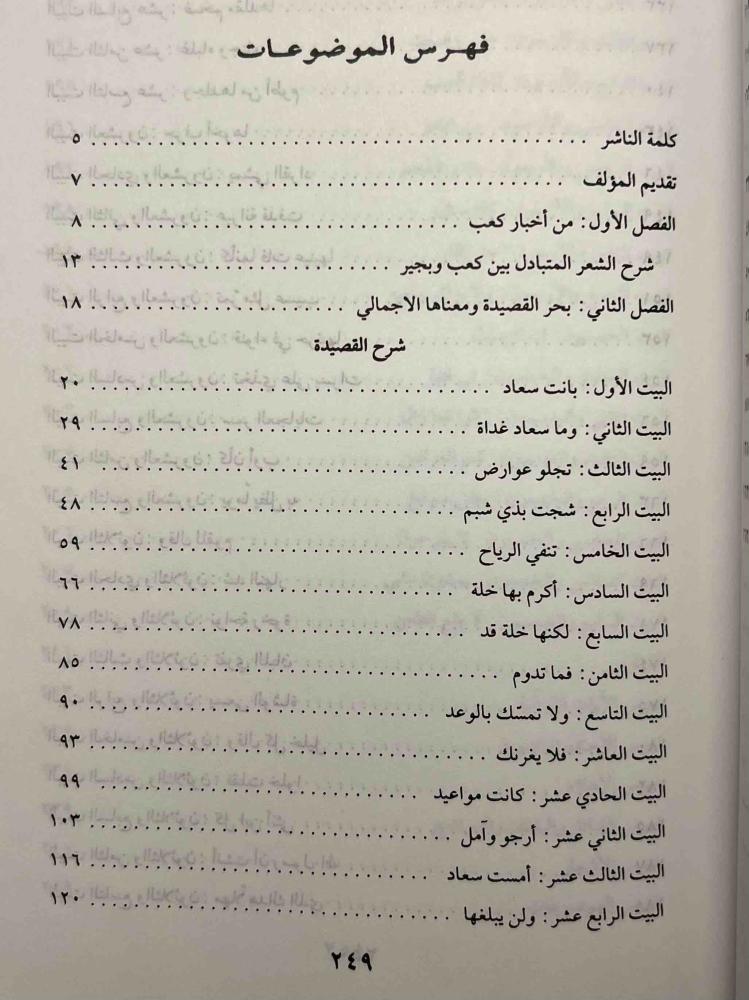 فهرس الموضوعات
كلمة الناشر ............ ٥
تقديم المؤلف ............ ٧
الفصل الأول: من أخبار كعب ............ ٨
شرح الشعر المتبادل بين كعب وبجير ............ ١٣
الفصل الثاني: بحر القصيدة ومعناها الاجمالي ............ ١٨
شرح القصيدة
البيت الأول: بانت سعاد ............ ٢٠
البيت الثاني: وما سعاد غداة ............ ٢٩
البيت الثالث: تجلو عوارض ............ ٤١
البيت الرابع: شجت بذي شبم ............ ٤٨
البيت الخامس: تنفي الرياح ............ ٥٩
البيت السادس: أكرم بها خلة ............ ٦٦
البيت السابع: لكنها خلة قد ............ ٧٨
البيت الثامن: فما تدوم ............ ٨٥
البيت التاسع: ولا تمسّك بالوعد ............ ٩٠
البيت العاشر: فلا يغرنك ............ ٩٣
البيت الحادي عشر: كانت مواعيد ............ ٩٩
البيت الثاني عشر: أرجو وآمل ............ ١٠٣
البيت الثالث عشر: أمست سعاد ............ ١١٦
البيت الرابع عشر: ولن يبلغها ............ ١٢٠
٢٤٩